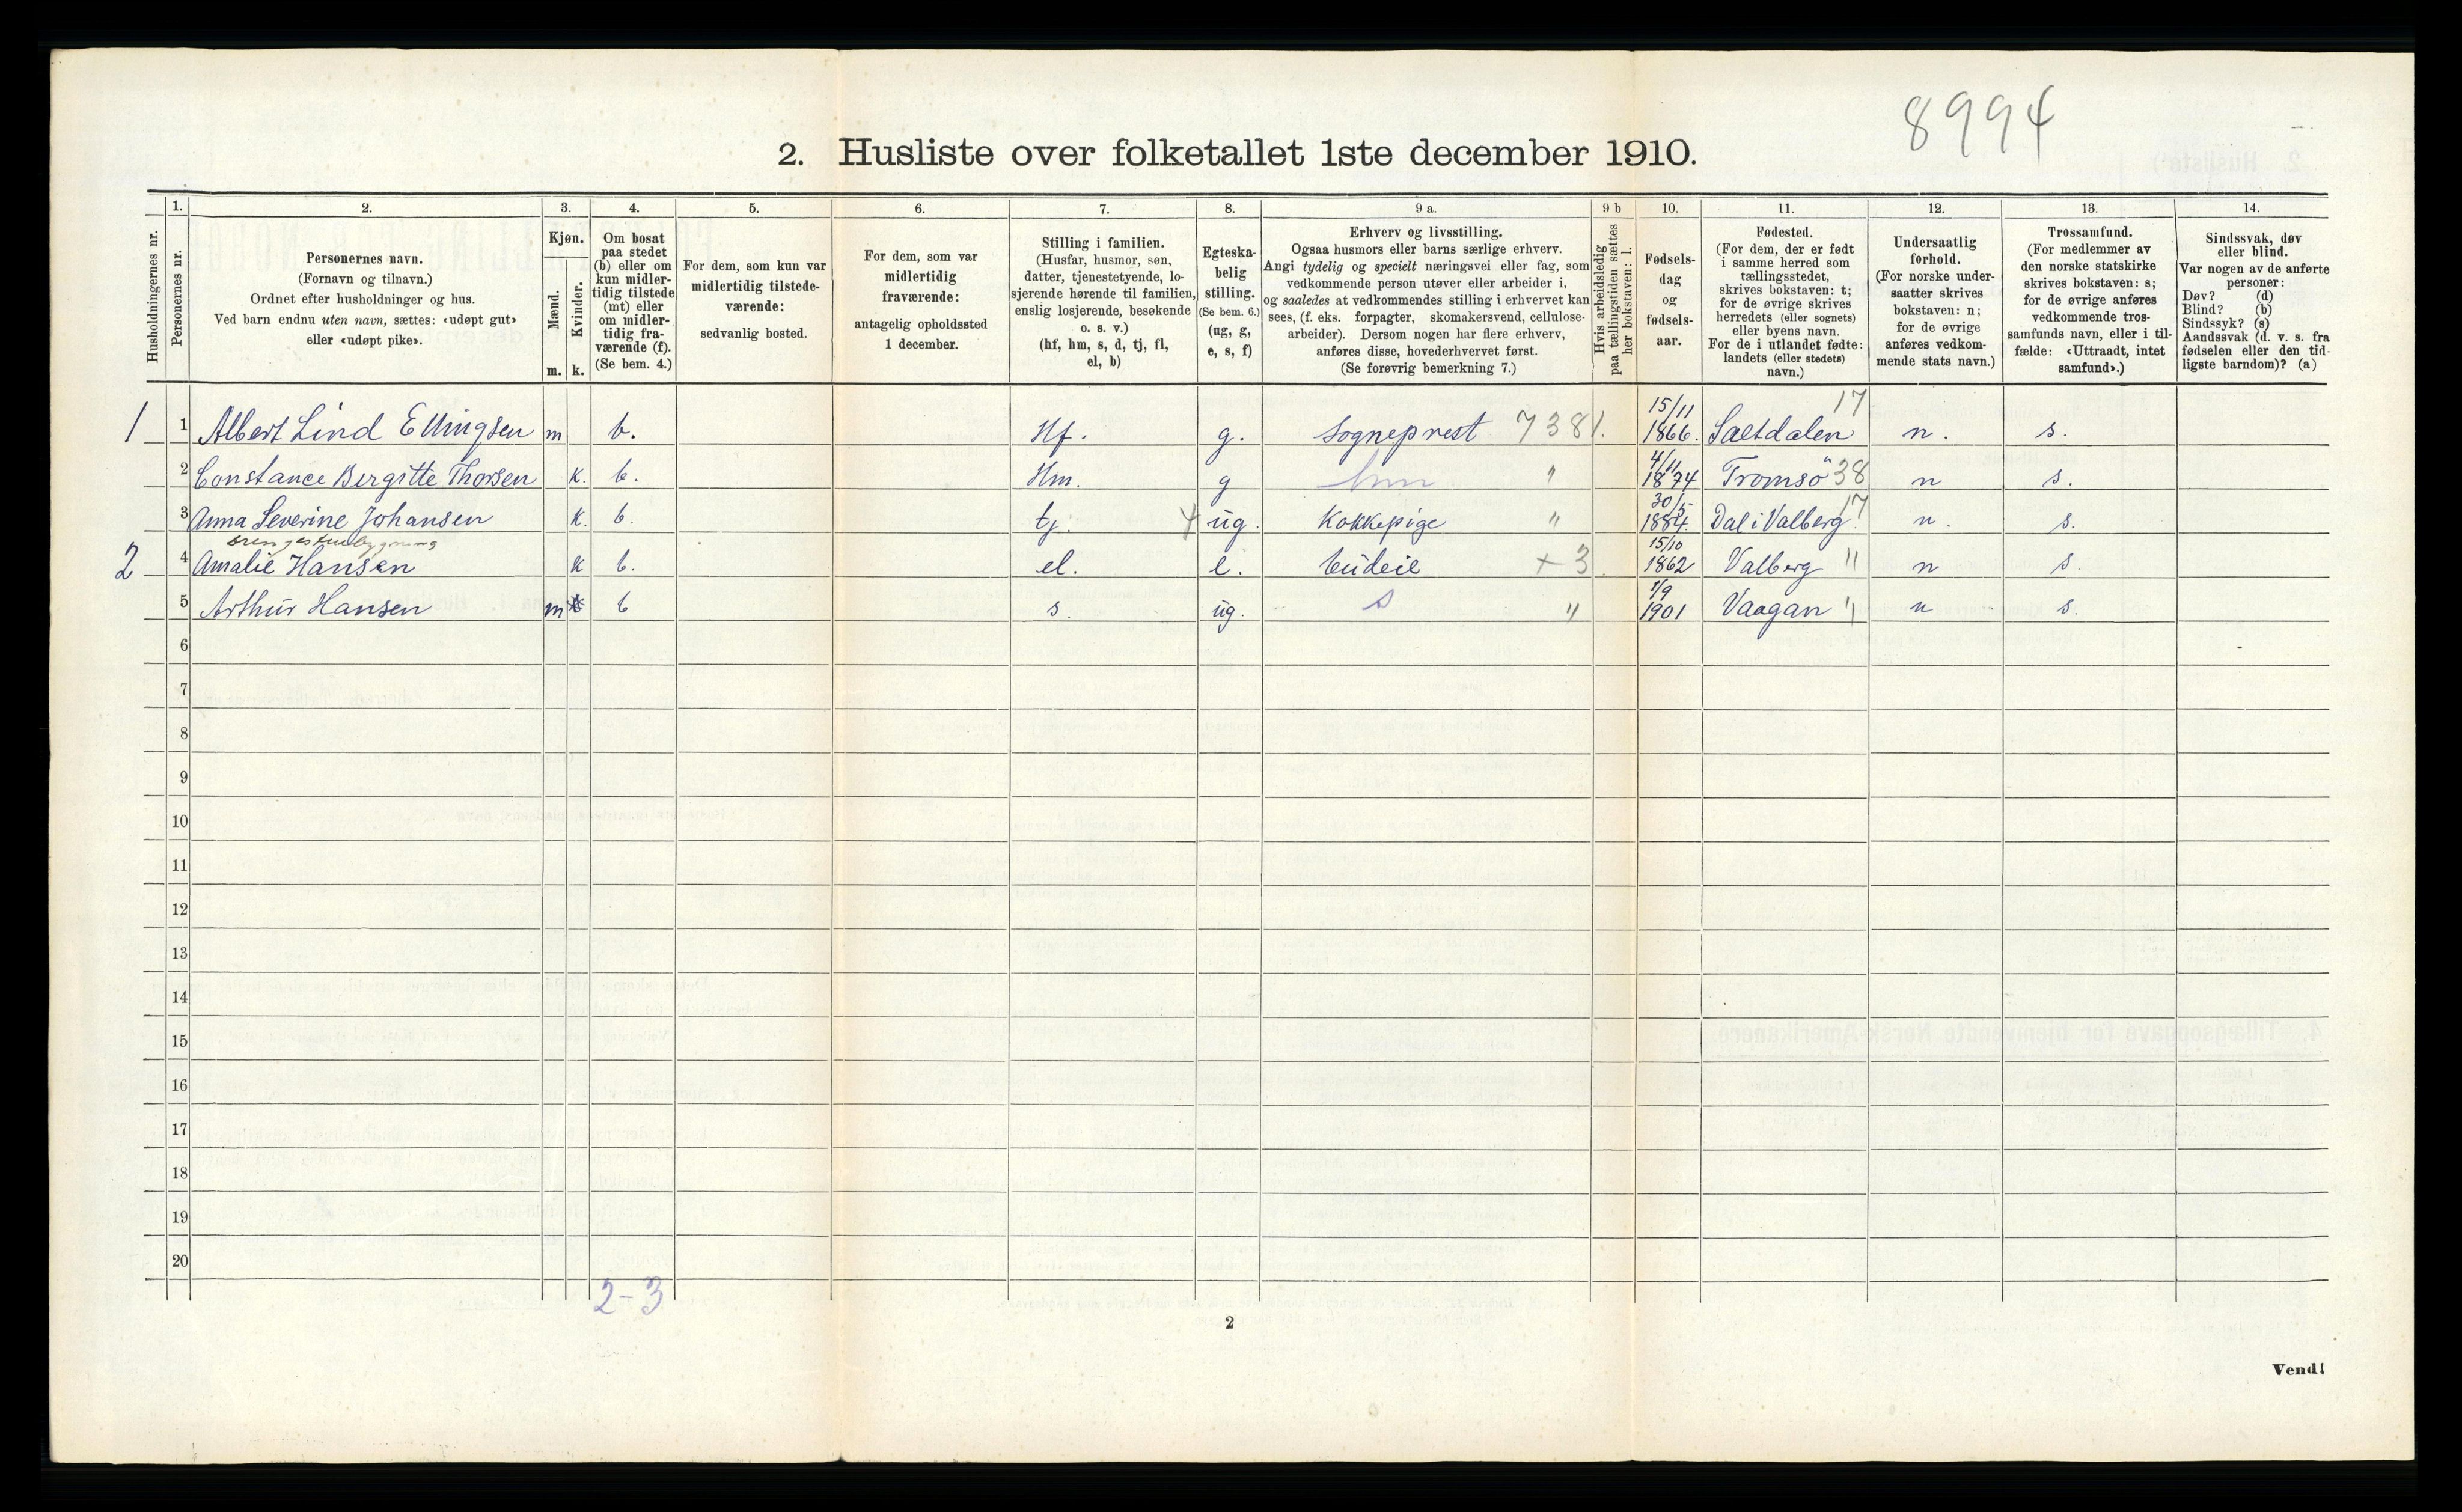 8994
2. Husliste over folketallet 1ste december 1910.
Husholdningernes nr.
1.
Personernes nr.
2.
Personernes navn.
(Fornavn og tilnavn.)
Ordnet efter husholdninger og hus.
Ved barn endnu uten navn, sættes: «udøpt gut»
eller «udøpt pike».
3.
Kjøn.
Mænd.
Kvinder.
m. k.
4.
Om bosat
paa stedet
(b) eller om
kun midler-
tidig tilstede
(mt) eller
om midler-
tidig fra-
værende (f).
(Se bem. 4.)
5.
For dem, som kun var
midlertidig tilstede-
værende:
sedvanlig bosted.
6.
For dem, som var
midlertidig
fraværende:
antagelig opholdssted
1 december.
7.
Stilling i familien.
(Husfar, husmor, søn,
datter, tjenestetyende, lo-
sjerende hørende til familien,
enslig losjerende, besøkende
o. s. v.)
(hf, hm, s, d, tj, fl,
el, b)
8.
Egteska-
belig
stilling.
(Se bem. 6.)
(ug, g,
e, s, f)
9 a.
Erhverv og livsstilling.
Ogsaa husmors eller barns særlige erhverv.
Angi tydelig og specielt næringsvei eller fag, som
vedkommende person utøver eller arbeider i,
og saaledes at vedkommendes stilling i erhvervet kan
sees, (f. eks. forpagter, skomakersvend, cellulose-
arbeider). Dersom nogen har flere erhverv,
anføres disse, hovederhvervet først.
(Se forøvrig bemerkning 7.)
9 b
Hvis arbeidsledig
paa tællingstiden sættes
her bokstaven: l.
10.
Fødsels-
dag
og
fødsels-
aar.
11.
Fødested.
(For dem, der er født
i samme herred som
tællingsstedet,
skrives bokstaven: t;
for de øvrige skrives
herredets (eller sognets)
eller byens navn.
For de i utlandet fødte:
landets (eller stedets)
navn.)
12.
Undersaatlig
forhold.
(For norske under-
saatter skrives
bokstaven: n;
for de øvrige
anføres vedkom-
mende stats navn.)
13.
Trossamfund.
(For medlemmer av
den norske statskirke
skrives bokstaven: s;
for de øvrige anføres
vedkommende tros-
samfunds navn, eller i til-
fælde: «Uttraadt, intet
samfund».)
14.
Sindssvak, døv
eller blind.
Var nogen av de anførte
personer:
Døv? (d)
Blind? (b)
Sindssyk? (s)
Aandssvak (d. v. s. fra
fødselen eller den tid-
ligste barndom)? (a)
1 1 Albert Lind Ellingsen m b. Hf. g. Sogneprest 7381. 15/11 1866. Saltdalen 17 n. s.
2 Constance Bergitte Thorsen k. b. Hm. g hm " 4/11 1874 Tromsö 38 n s.
3 Anna Severine Johansen k. b. tj. 4 ug. Kokkepige " 30/5 1884. Dal i Valberg. 17 n. s.
drengestubygning
2 4 Amalie Hansen k b. el. e. budeie + 3 15/10 1862 Valberg " n s.
5 Arthur Hansen m b s. ug. s " 1/9 1901 Vaagan " n s.
6
7
8
9
10
11
12
13
14
15
16
17
18
19
20
2-3
2
Vend!